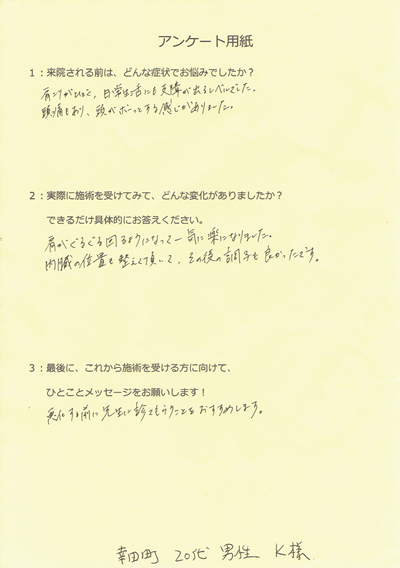 アンケート用紙
1：来院される前は、どんな症状でお悩みでしたか？
肩コリがひどく、日常生活にも支障が出るレベルでした。
頭痛もあり、頭がボーっとする感じがありました。
2：実際に施術を受けてみて、どんな変化がありましたか？
できるだけ具体的にお答えください。
肩がぐるぐる回るようになって一気に楽になりました。
内臓の位置も整えて頂いて、その後の調子も良かったです。
3：最後に、これから施術を受ける方に向けて、
ひとことメッセージをお願いします！
悪化する前に先生に診てもらうことをおすすめします。
幸田町 20代 男性 K様